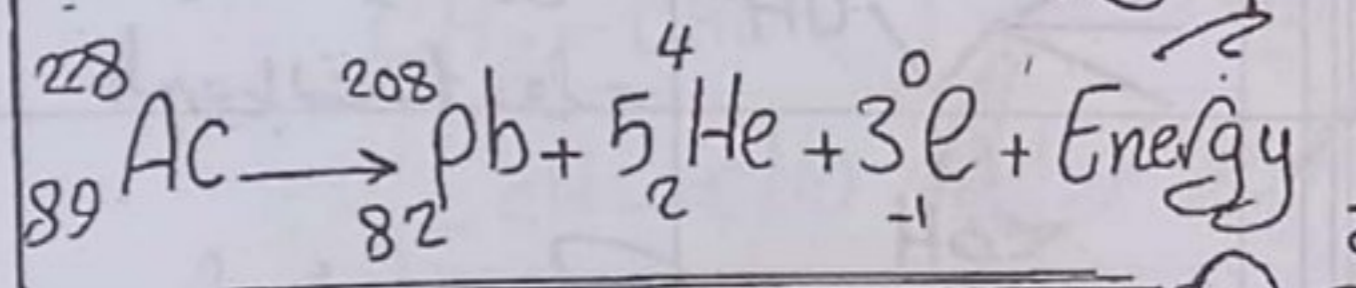 ²²⁸₈₉Ac → ²⁰⁸₈₂Pb + 5 ⁴₂He + 3 ⁰₋₁e + Energy